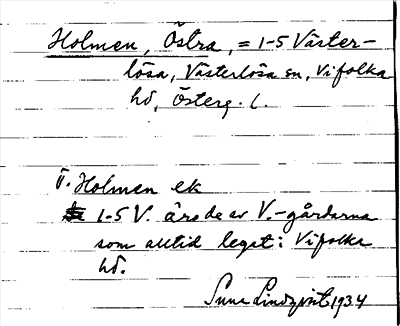 Holmen, Östra, = 1-5 Väster-
lösa, Västerlösa sn, Vifolka
hd, Österg. l.
Ö. Holmen ek
1-5 V. äro de av V.-gårdarna
som alltid legat i Vifolka
hd.
Sune Lindqvist 1934